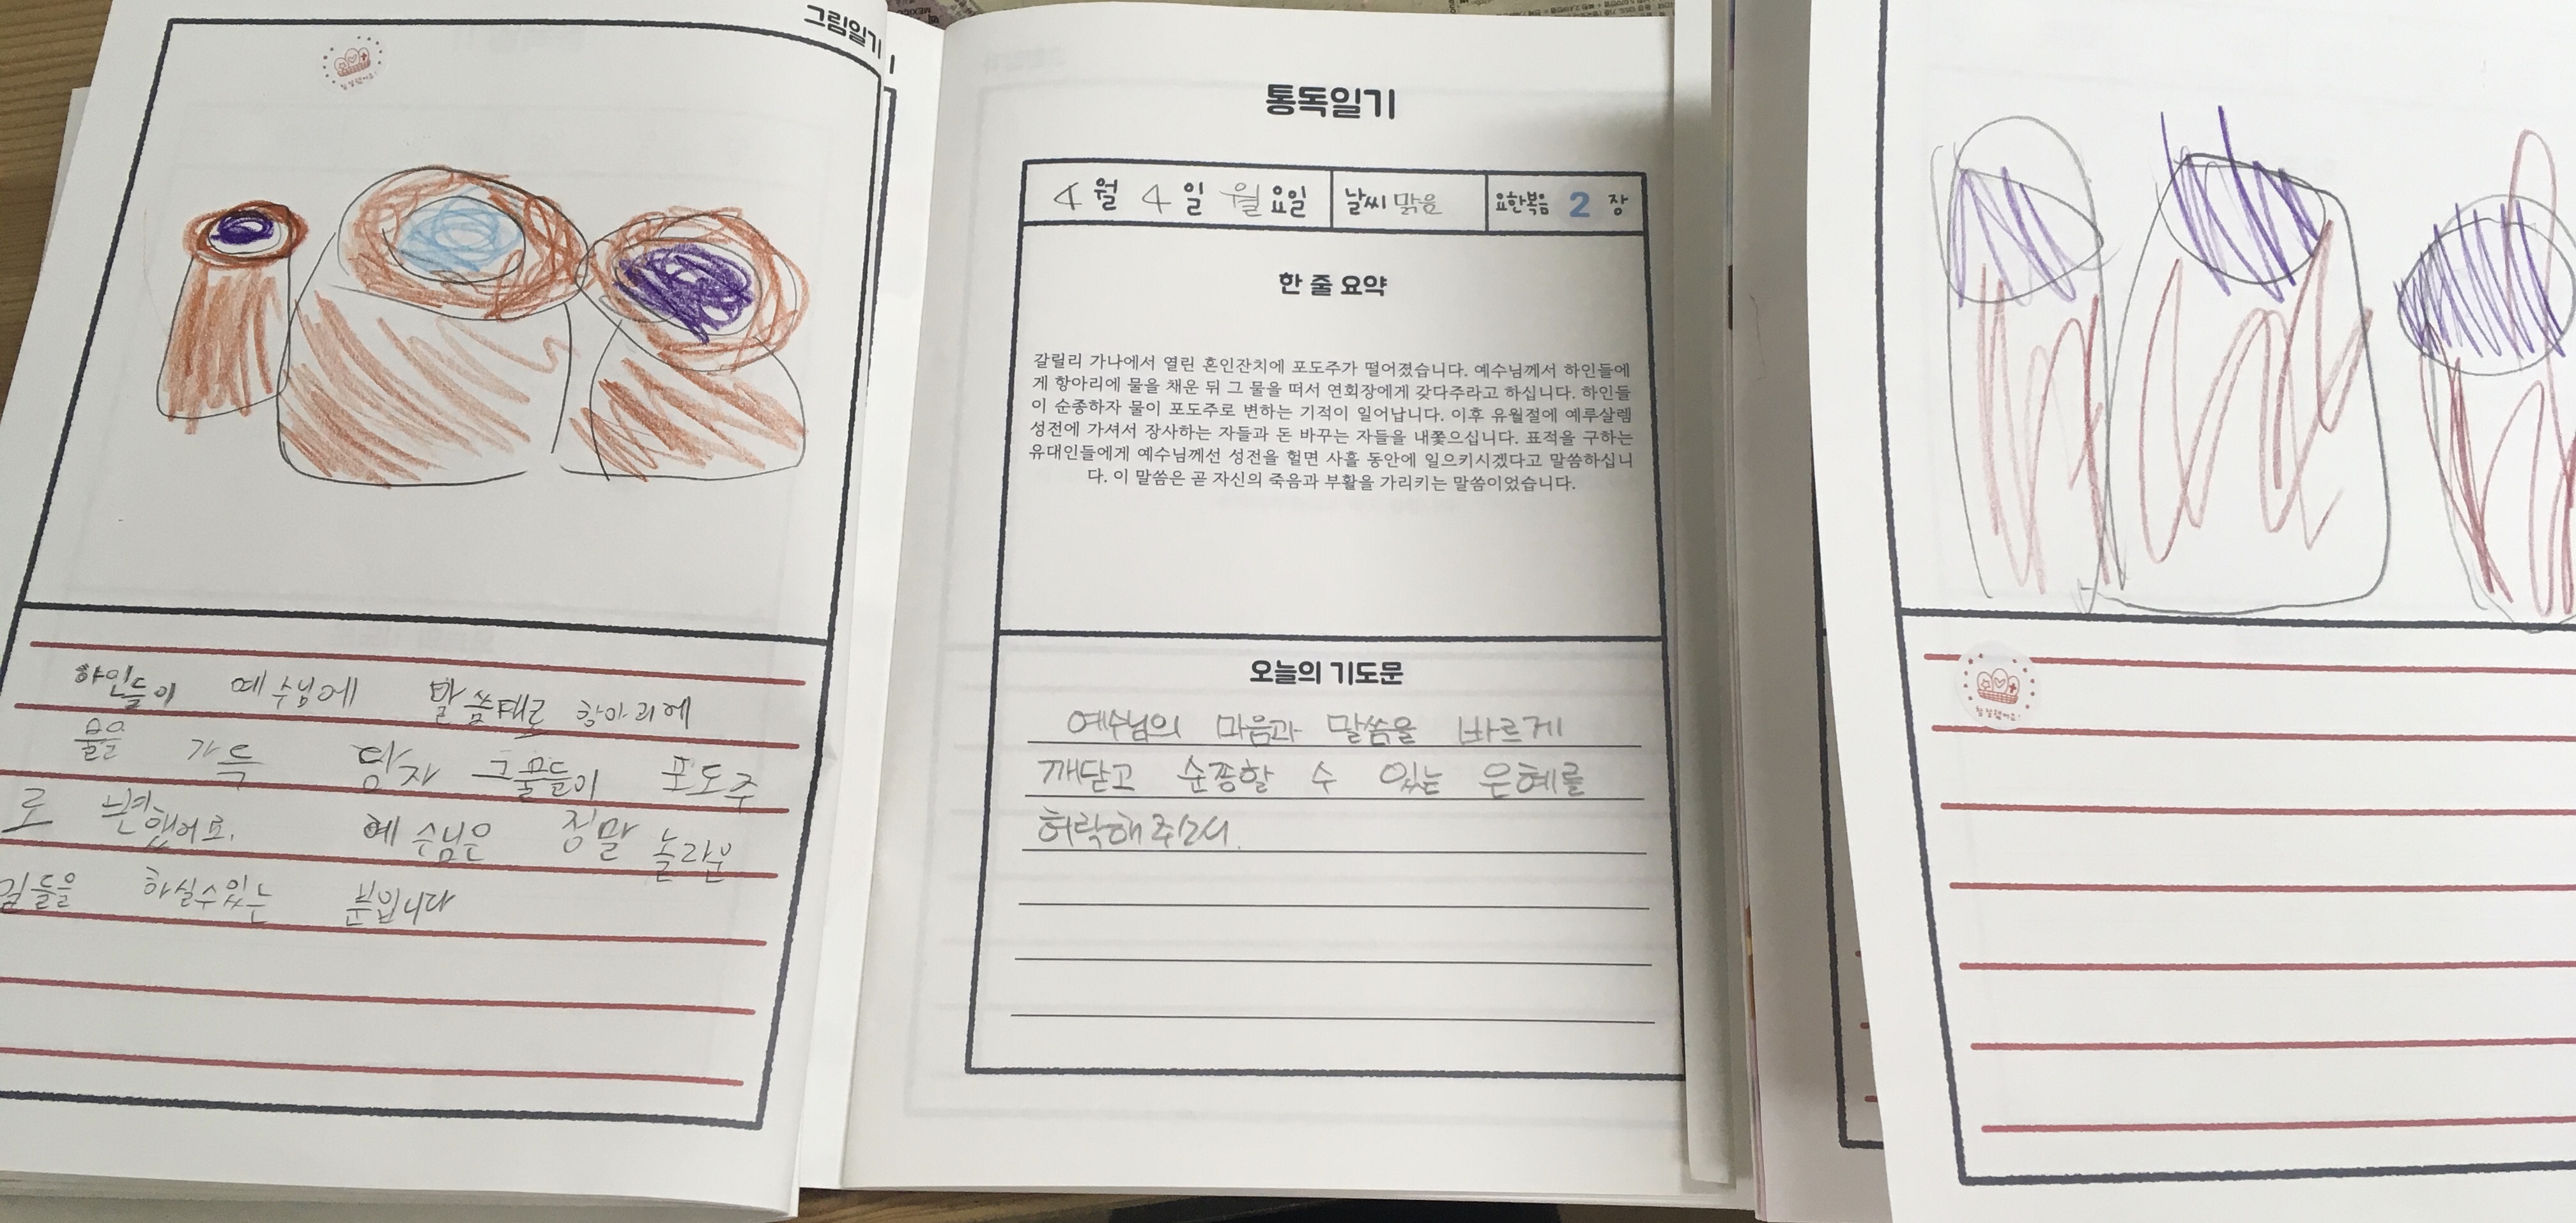 그림일기
참 잘했어요!
하인들이 예수님에 말씀대로 항아리에
물을 가득 담자 그 물들이 포도주
로 변했어요. 예수님은 정말 놀라운
일들을 하실수있는 분입니다
통독일기
4 월 4 일 월 요일 날씨 맑음 요한복음 2 장
한 줄 요약
갈릴리 가나에서 열린 혼인잔치에 포도주가 떨어졌습니다. 예수님께서 하인들에
게 항아리에 물을 채운 뒤 그 물을 떠서 연회장에게 갖다주라고 하십니다. 하인들
이 순종하자 물이 포도주로 변하는 기적이 일어납니다. 이후 유월절에 예루살렘
성전에 가셔서 장사하는 자들과 돈 바꾸는 자들을 내쫓으십니다. 표적을 구하는
유대인들에게 예수님께선 성전을 헐면 사흘 동안에 일으키시겠다고 말씀하십니
다. 이 말씀은 곧 자신의 죽음과 부활을 가리키는 말씀이었습니다.
오늘의 기도문
예수님의 마음과 말씀을 바르게
깨닫고 순종할 수 있는 은혜를
허락해 주소서.
참 잘했어요!